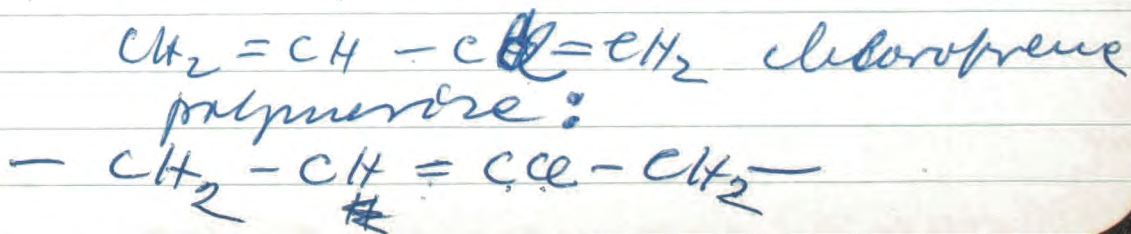 CH₂ = CH - CCl = CH₂ chloroprene
polymerise :
- CH₂ - CH = CCl - CH₂ -